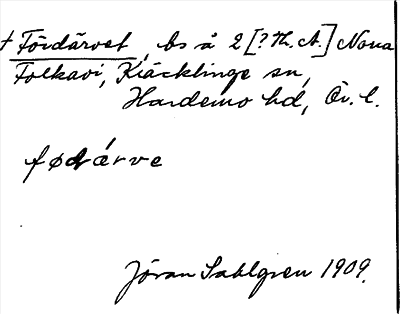 † Fördärvet, bs å 2 [? Th. A.] Norra
Folkavi, Kräcklinge sn,
Hardemo hd, Ör. l.
fødárve
Jöran Sahlgren 1909.